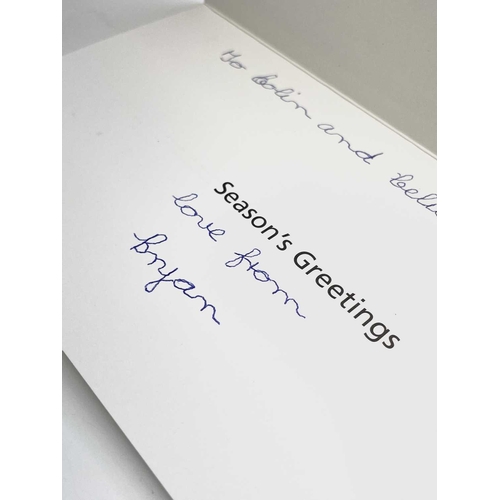 To Colin and
Season's Greetings
love from
Bryan